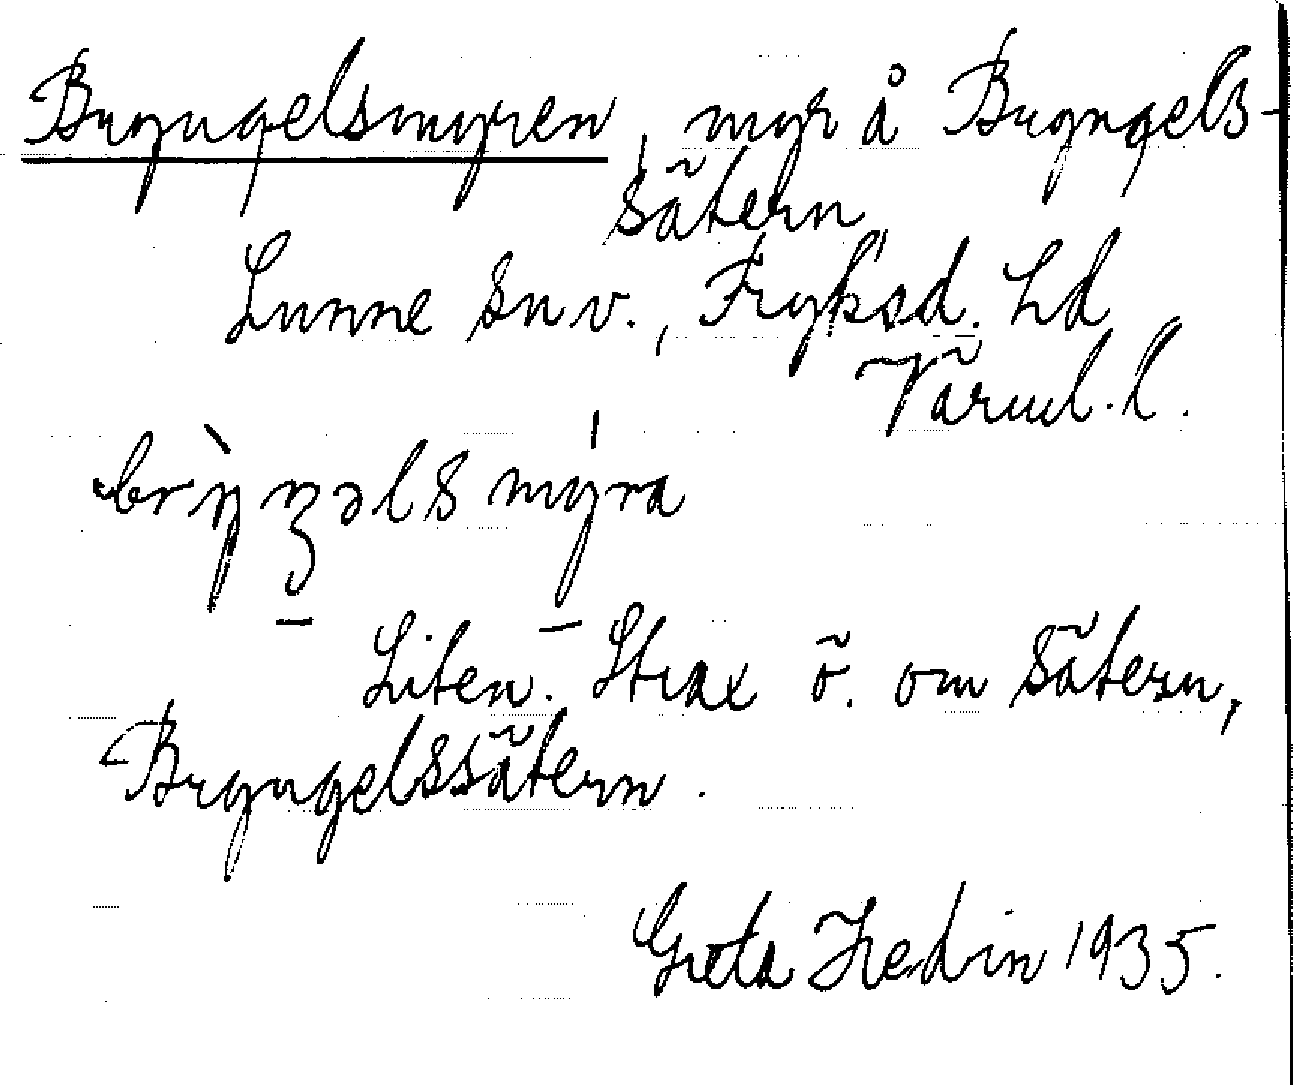 Bryngelsmyren, myr å Bryngels-
sätern,
Sunne sn v., Fryksd. hd
Värml. l.
myra
Liten. Strax ö. om sätern,
Bryngelssätern.
Greta Hedin 1935.